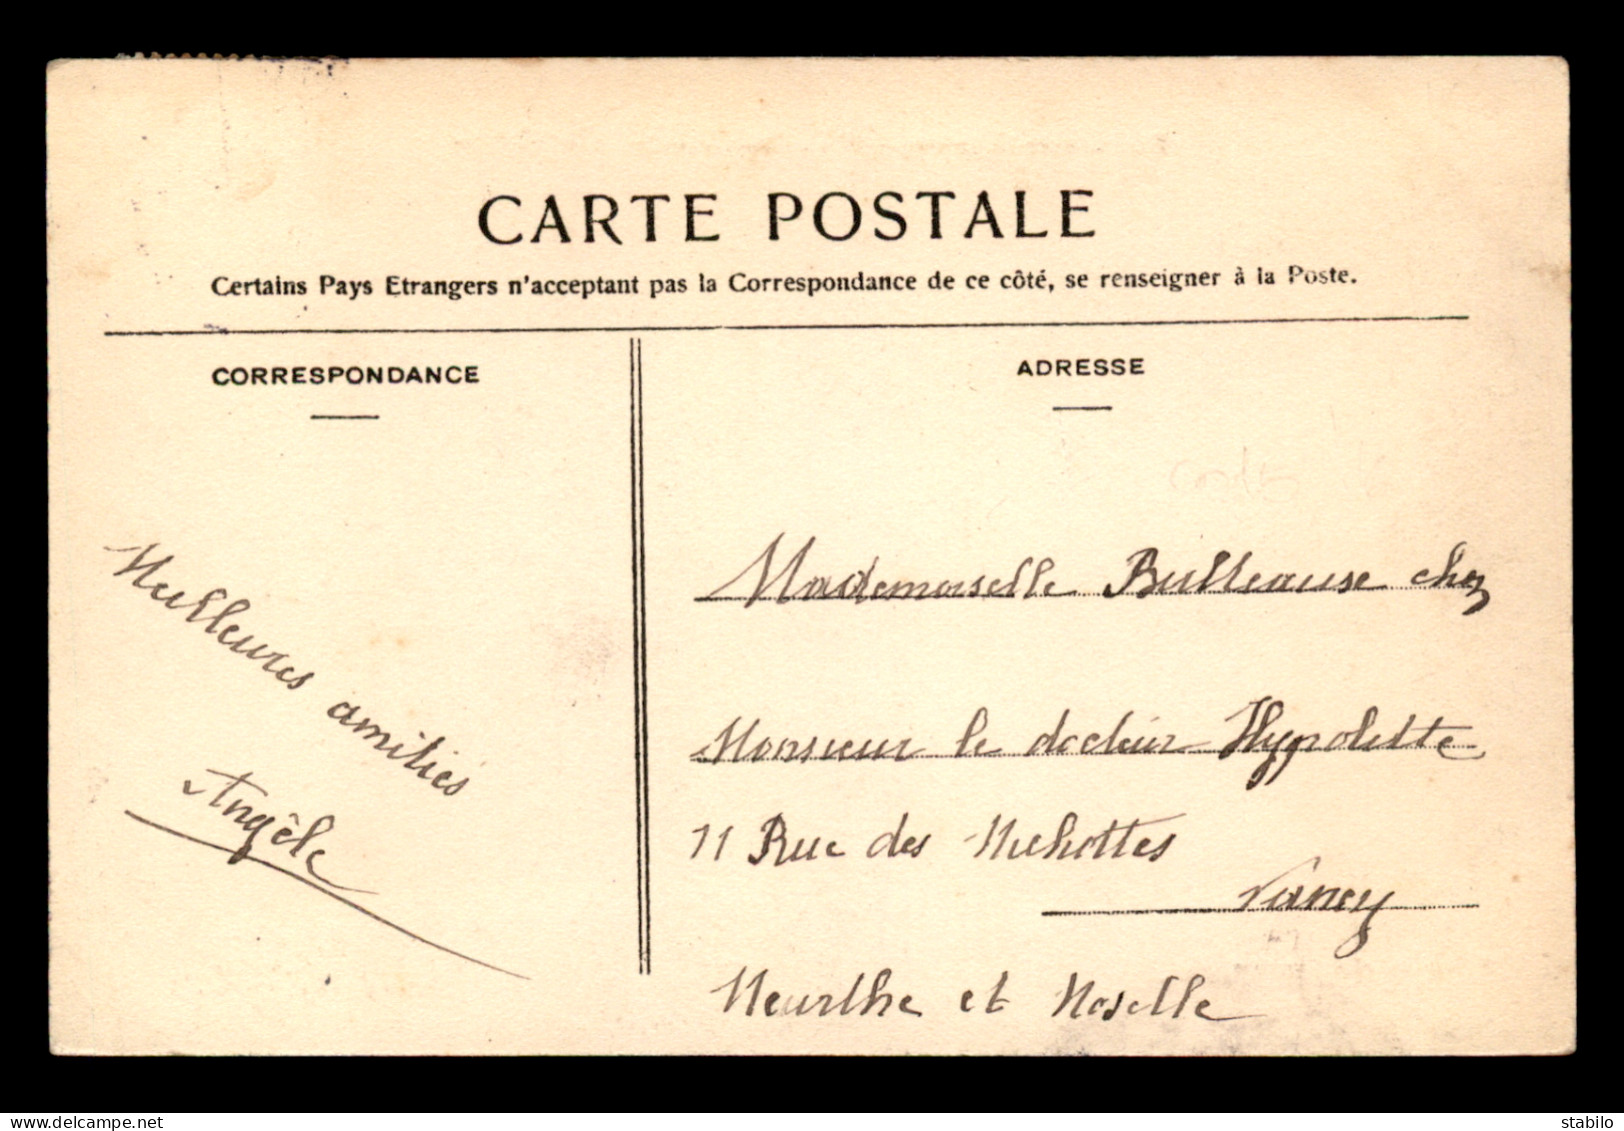 CARTE POSTALE
Certains Pays Etrangers n'acceptant pas la Correspondance de ce côté, se renseigner à la Poste.
CORRESPONDANCE
ADRESSE
Meilleures amitiés
Angèle
Mademoiselle chez
Monsieur le docteur Hypolitte
11 Rue des Michottes
Nancy
Meurthe et Moselle
www.delcampe.net
stabilo